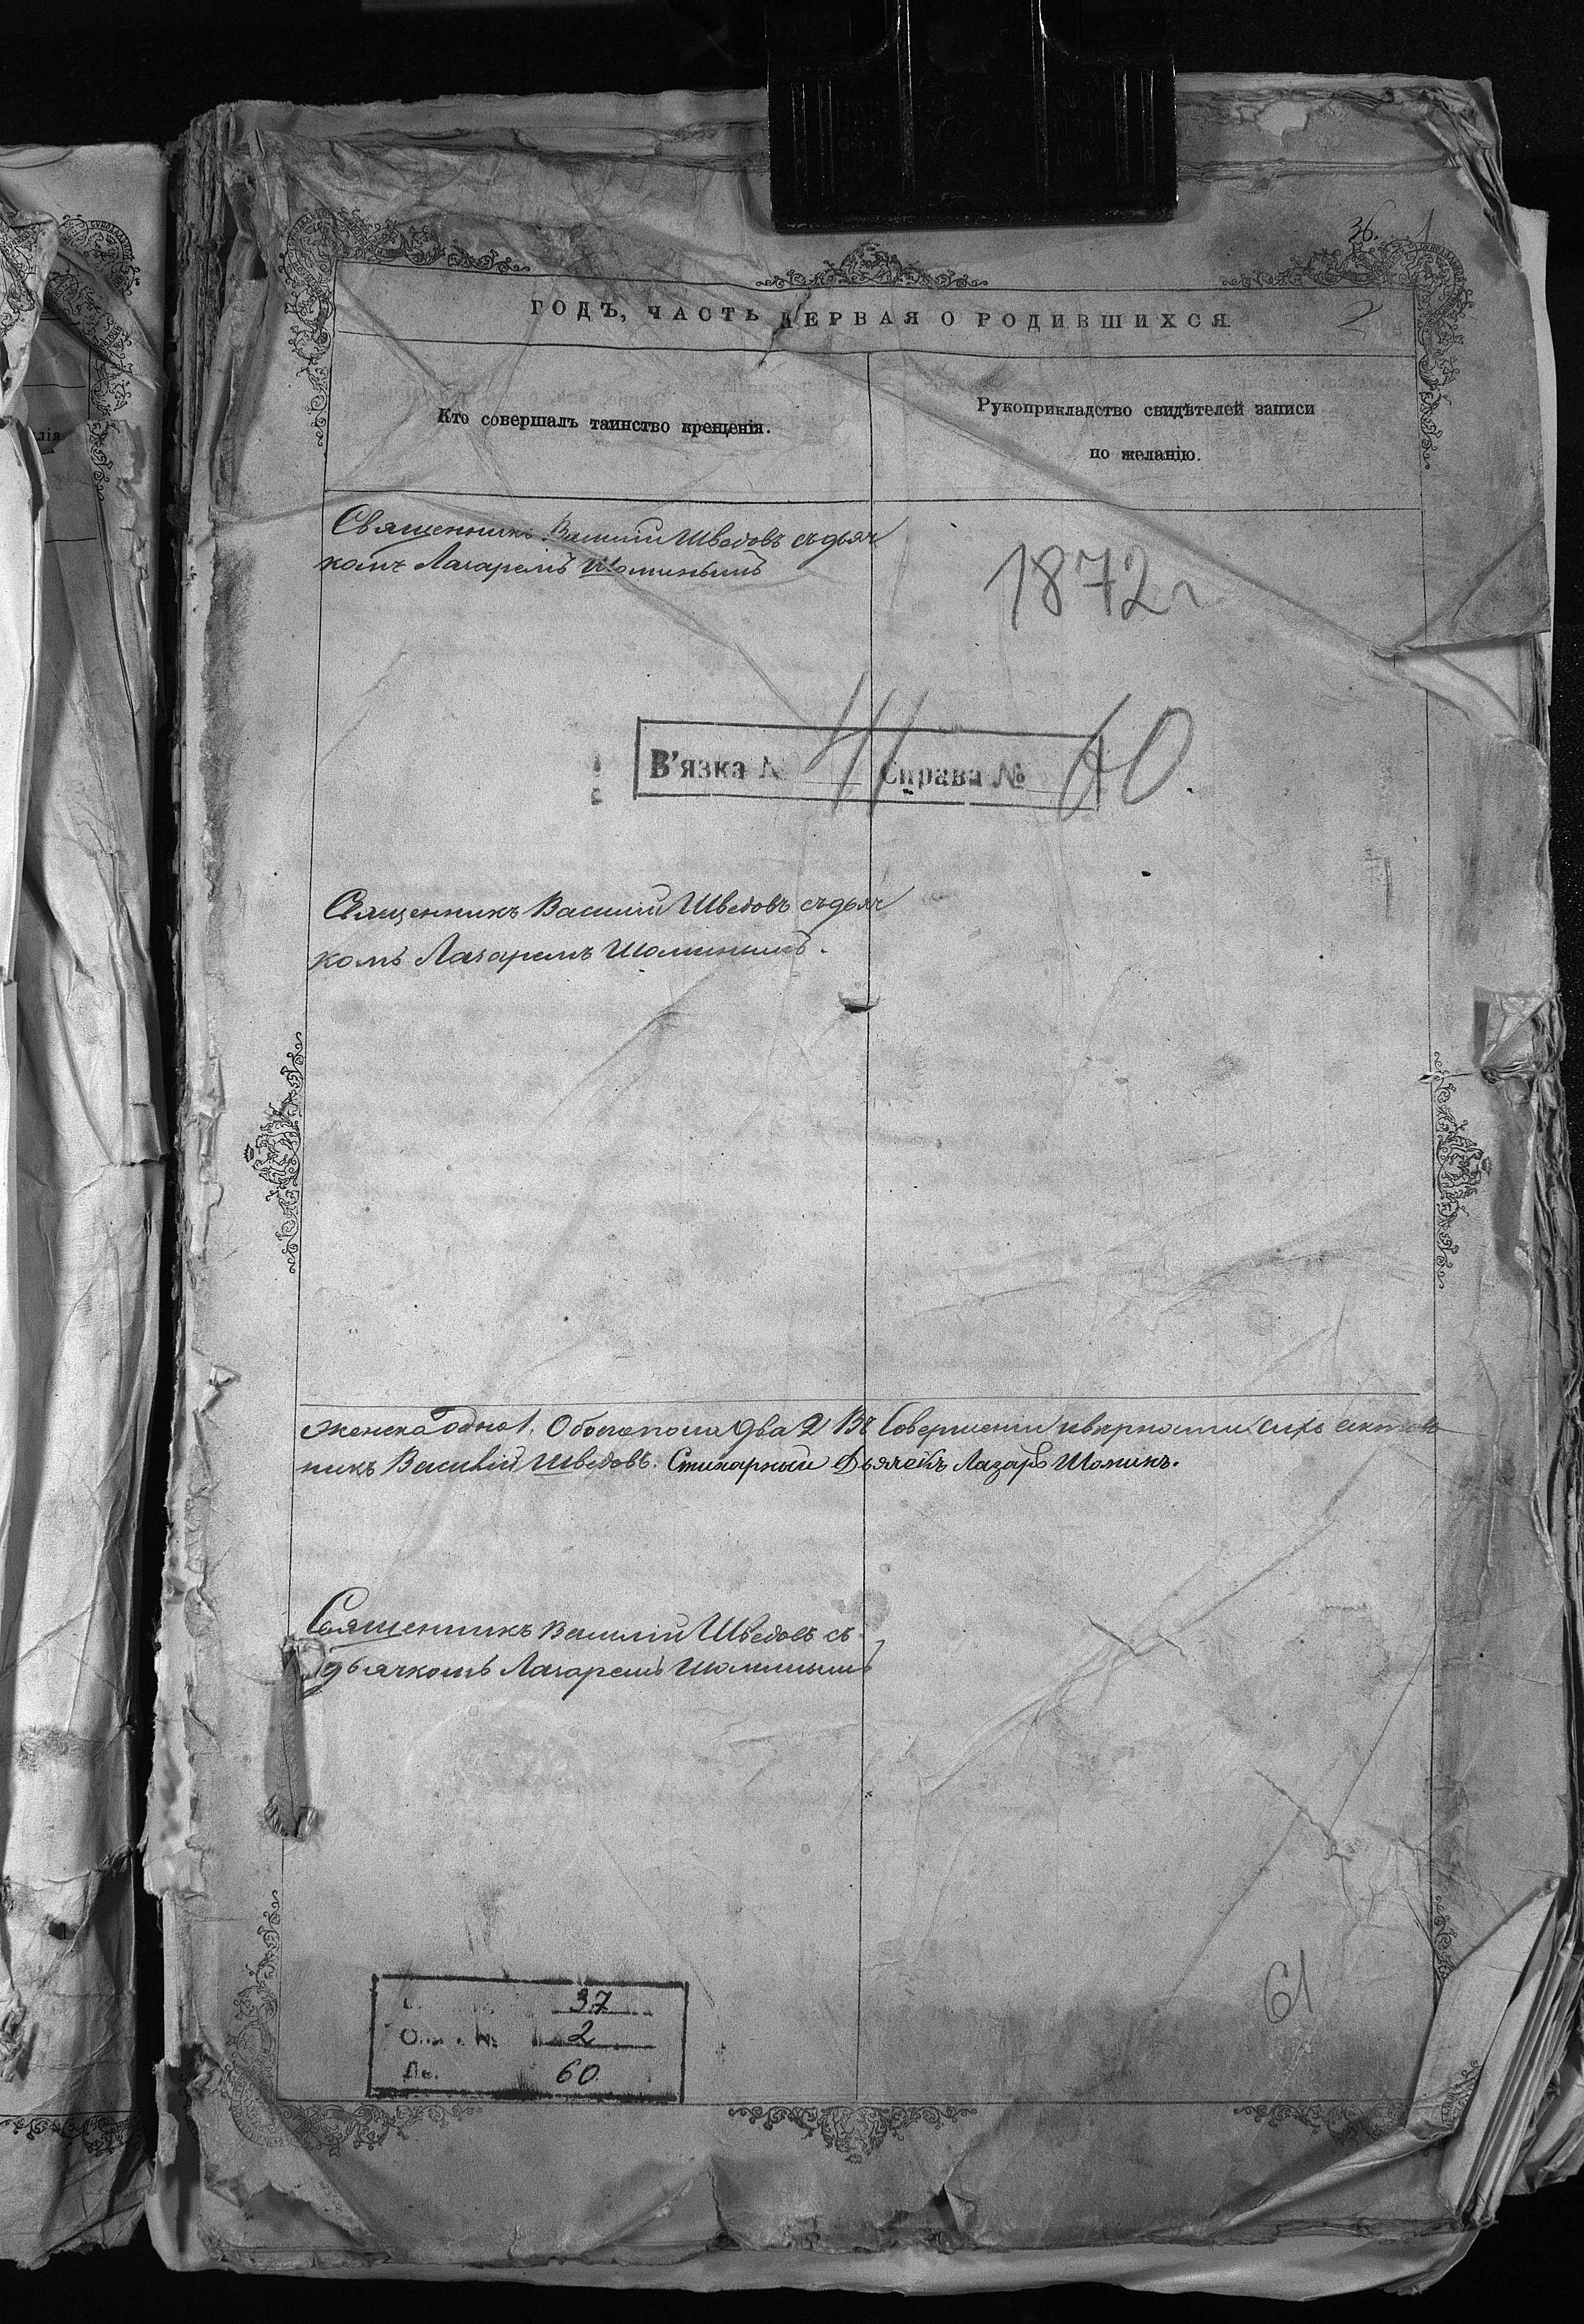 36.
ГОДЪ, ЧАСТЬ ПЕРВАЯ О РОДИВШИХСЯ.
2
Кто совершалъ таинство крещенія.
Рукоприкладство свидѣтелей записи
по желанію.
Священникъ Василій Шведовъ съ дьяч
комъ Лазаремъ Шоминымъ
1872 г
В'язка № 41 Справа № 60.
Священникъ Василій Шведовъ съ дьяч
комъ Лазаремъ Шоминымъ.
женска одно 1. Обоего пола два 2 Въ Совершеніи и вѣрности сихъ актовъ
никъ Василій Шведовъ. Стихарный Дьячекъ Лазарь Шоминъ.
Священникъ Василій Шведовъ съ
дьячкомъ Лазаремъ Шоминымъ
61
37
№ 2
60